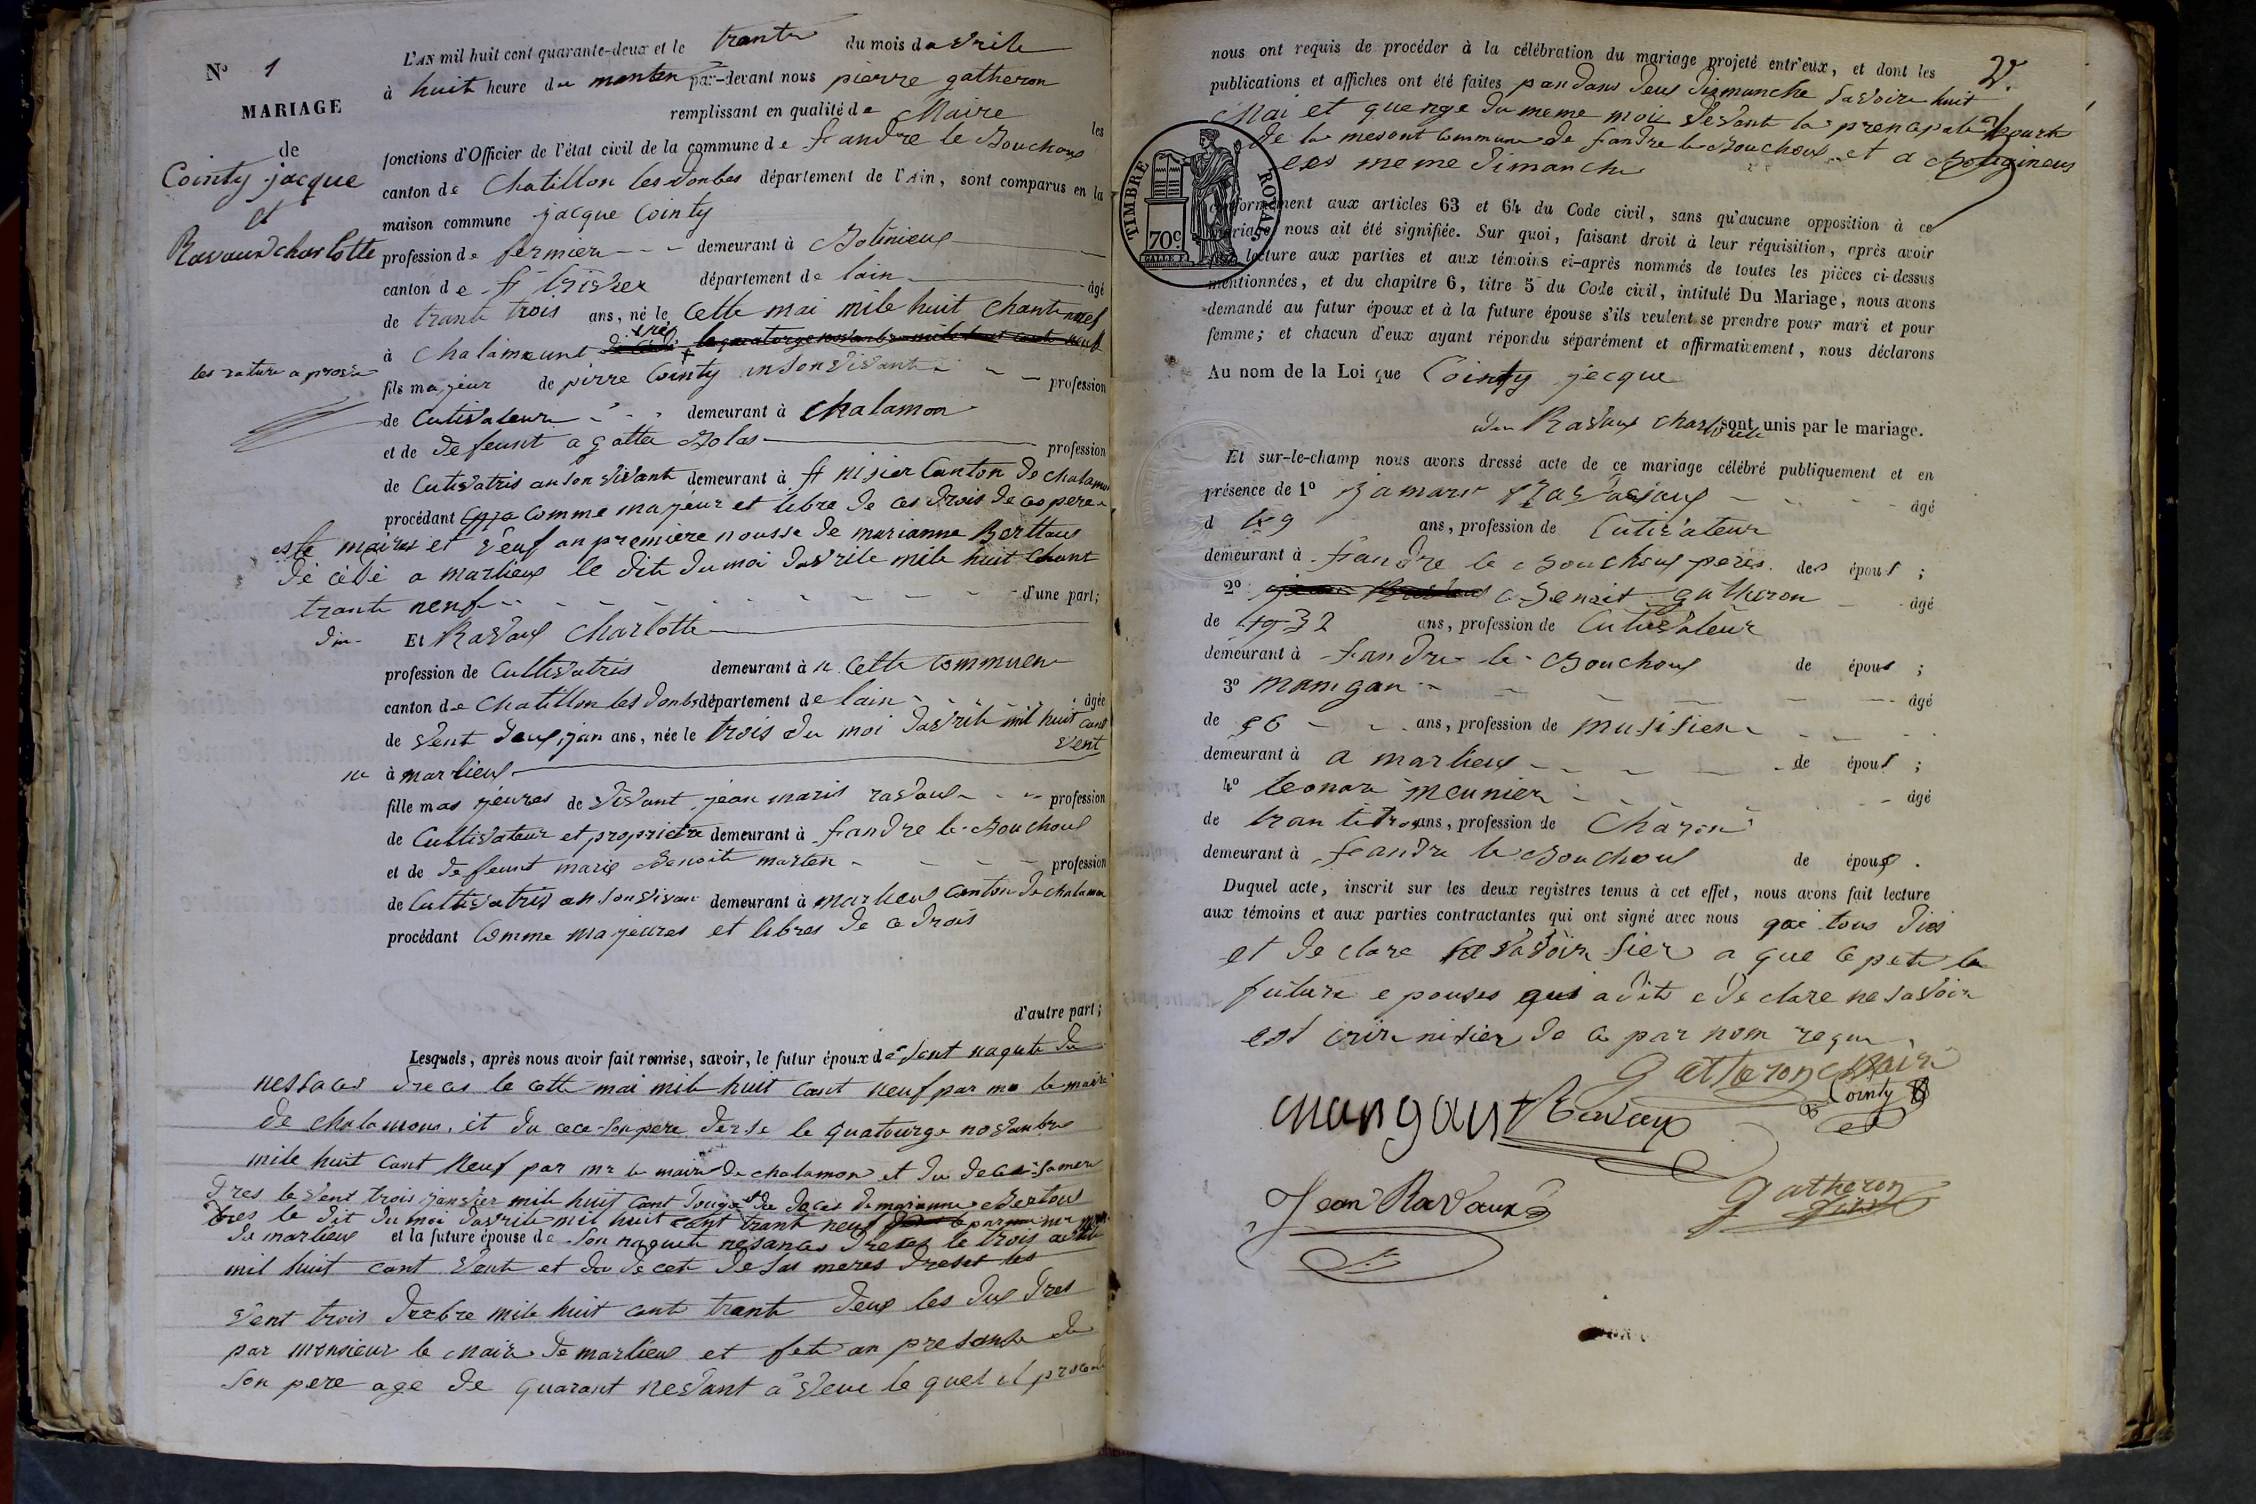 N° 1
MARIAGE
de
Cointy jacque
et
Ravaux charlotte
L'AN mil huit cent quarante-deux et le trante du mois d avrile
à huit heure du manten par-devant nous pierre gatheron
remplissant en qualité de Maire les
fonctions d'Officier de l'état civil de la commune de st andre le Bouchoux
canton de Chatillon les donbes département de l'AIN, sont comparus en la
maison commune jacque Cointy
profession de fermier demeurant à Bolinieux
canton de st trivier département de lain âgé
de trante trois ans, né le cette mai mile huit chant neuf
à Chalameunt le quatorge novanbre mile huit cant neuf
les rature aprové
fils majeur de pirre Cointy en son vivant profession
de Cutivateur demeurant à chalamon
et de defeunt agatte Bolas profession
de Cutivatris an son vivant demeurant à st nisier Canton de chalamon
procédant comme majeur et libre de ces drois de ces pere
este maires et veuf an premiere nousse de marianne Berttous
dé cédé a marlieux le dite du moi davrile mile huit chant
trante neuf d'une part;
Et Ravaux Charlotte
profession de Cultivatris demeurant à cette commuen
canton de Chatillon les donbs département de lain âgée
de vent deux jan ans, née le trois du moi davrile mil huit cant
vent
à marlieux
fille mas jeures de vivant jean maris ravaux profession
de Cultivateur et proprietre demeurant à st andre le Bouchoux
et de defeunt marie Benoite marten profession
de Cultivatris an son vivan demeurant à marlieux canton de chalamon
procédant Comme majeures et libres de ce drois
d'autre part;
Lesquels, après nous avoir fait remise, savoir, le futur époux de sont naqute de
nessaces drecas le cette mai mile huit cant neuf par mo le maire
de chalamons, it du cece son pere derse le quatourge novanbre
mile huit cant neuf par mr le maire de chalamon et du dece sa mere
dres le vent trois janvier mile huit cant douge et de daces de marianne Bertous
dres le dit du moi davrile mil huit cant trant neuf par mr
de marlieux et la future épouse de son naquete nesances dreses le trois avrile
mil huit cant vente et du deces de sas meres dreset les
vent trois mile huit cant trante deux les dux dres
par monsieur le maire de marlieux et fete an presance de
son pere age de quarant nevant a vene le quel il procede
nous ont requis de procéder à la célébration du mariage projeté entr'eux, et dont les
publications et affiches ont été faites pandans deus dimanche savoire huit
Mai et quenge du meme moi devant la prencipale pourte
de la mesont commune de st andre le Bouchoux et a Boligineux
les meme dimanche
TIMBRE ROYAL
70 c.
conformément aux articles 63 et 64 du Code civil, sans qu'aucune opposition à ce
mariage nous ait été signifiée. Sur quoi, faisant droit à leur réquisition, après avoir
lecture aux parties et aux témoins ci-après nommés de toutes les pièces ci-dessus
mentionnées, et du chapitre 6, titre 5 du Code civil, intitulé Du Mariage, nous avons
demandé au futur époux et à la future épouse s'ils veulent se prendre pour mari et pour
femme; et chacun d'eux ayant répondu séparément et affirmativement, nous déclarons
Au nom de la Loi que Cointy jecque
Ravaux charlotte sont unis par le mariage.
Et sur-le-champ nous avons dressé acte de ce mariage célébré publiquement et en
présence de 1° âgé
d 49 ans, profession de Cutivateur
demeurant à st andre le Bouchoux peres des époux ;
2° Benoit gatheron âgé
de 32 ans, profession de Cutivateur
demeurant à st andre le Bouchoux de époux ;
3° mamgan âgé
de 56 ans, profession de musisien
demeurant à a marlieux de époux ;
4° leonar meunier âgé
de tran te trois ans, profession de Charon
demeurant à st andre le Bouchoux de époux .
Duquel acte, inscrit sur les deux registres tenus à cet effet, nous avons fait lecture
aux témoins et aux parties contractantes qui ont signé avec nous qai tous dies
et declare ne savoir sier a que cepete la
future epouses qui a dite e declare ne savoir
est crire nisier de ce par nom requ
Gatheron Maire
Cointy
mangant Ravaux
Jean Ravaux
gatheron